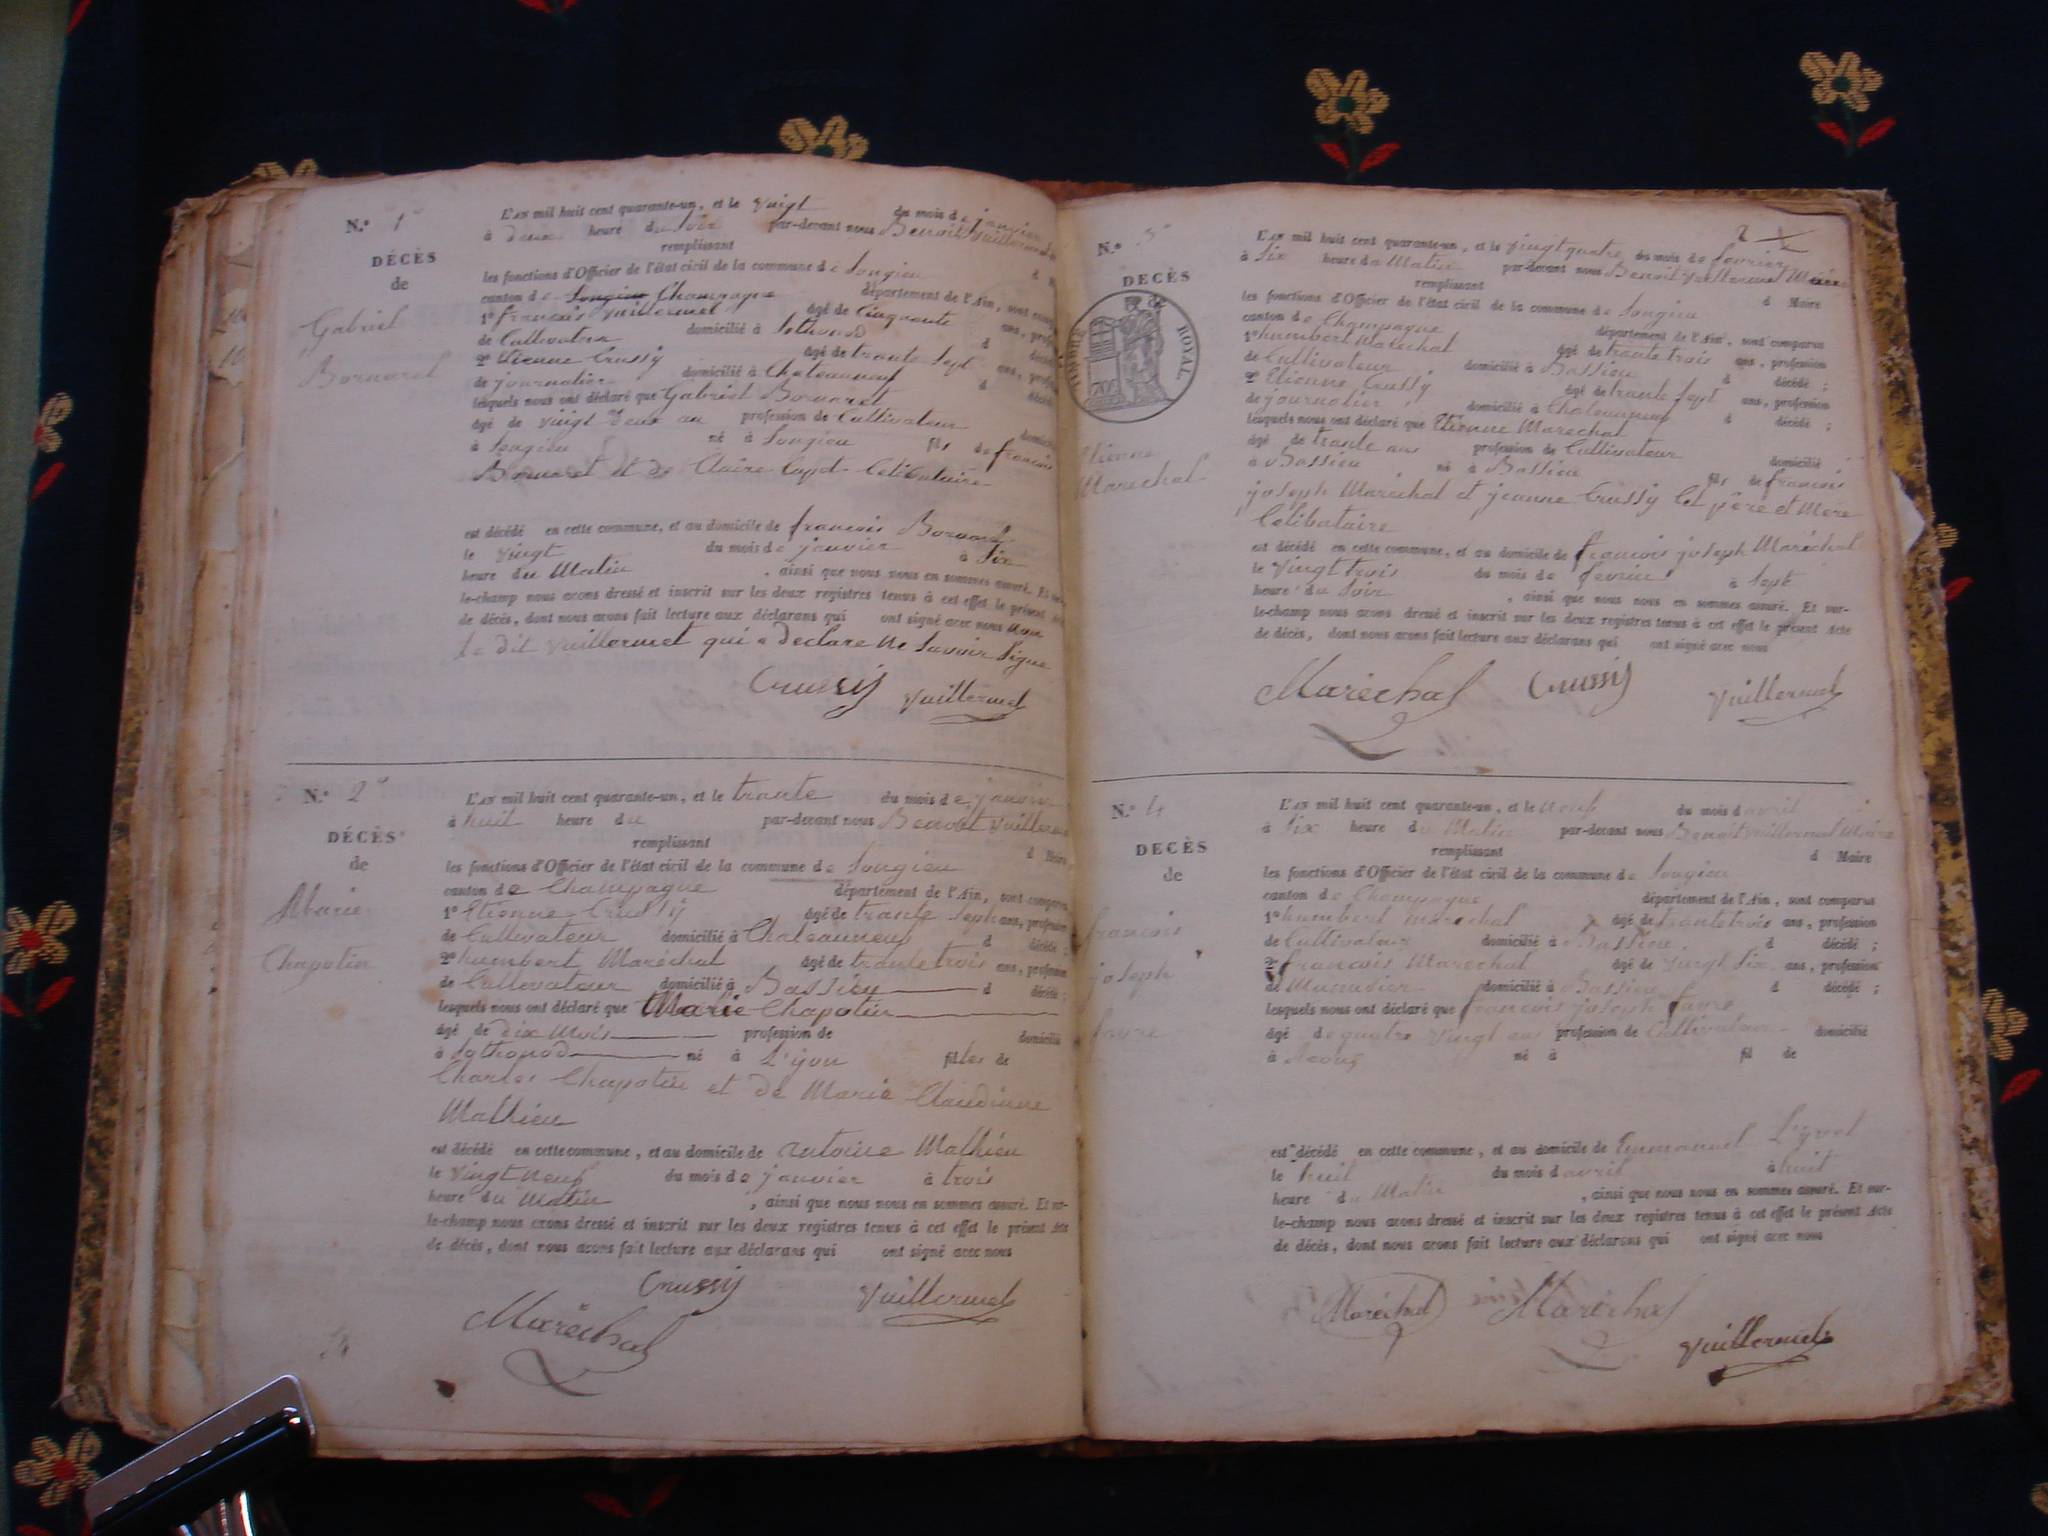 N.o 1o
DÉCÈS
de
Gabriel
Bornaret
L'AN mil huit cent quarante-un, et le vingt du mois de janvier
à deux heure du soir par-devant nous Benoit Vuillermet
remplissant
les fonctions d'Officier de l'état civil de la commune de Songieu
canton de Songieu Champagne département de l'Ain, sont
1o françois Vuillermet âgé de Cinquante ans,
de Cultivateur domicilié à Sothonod d
2o Etienne Crussy âgé de trante Sept ans,
de journalier domicilié à Chateauneuf d
lesquels nous ont déclaré que Gabriel Bornaret
âgé de vingt deux an profession de Cultivateur
à Songieu né à Songieu fils de francois
Bornaret et de Claire Capot Célébataire
est décédé en cette commune, et au domicile de francois Bornaret
le vingt du mois de janvier à Six
heure du Matin , ainsi que nous nous en sommes assuré. Et
le-champ nous avons dressé et inscrit sur les deux registres tenus à cet effet le présent
de décès, dont nous avons fait lecture aux déclarans qui ont signé avec nous non
le dit Vuillermet qui a declare ne Savoir Signe
Crussy Vuillermet
N.o 2o
DÉCÈS
de
Marie
Chapotin
L'AN mil huit cent quarante-un, et le trante du mois de janvier
à huit heure du par-devant nous Benoit Vuillermet
remplissant d Maire
les fonctions d'Officier de l'état civil de la commune de Songieu
canton de Champagne département de l'Ain, sont comparus
1o Etienne Crussy âgé de trante Sept ans, profession
de Cultivateur domicilié à Chateauneuf d décédé ;
2o humbert Maréchal âgé de trante trois ans, profession
de Cultivateur domicilié à Bassieu d décédé ;
lesquels nous ont déclaré que Marie Chapotin
âgé de dix Mois profession de domicilié
à Sothonod né à L'yon filles de
Charles Chapotin et de Marie Claudinne
Mathieu
est décédé en cette commune, et au domicile de antoine Mathieu
le vingt neuf du mois de janvier à trois
heure du Matin , ainsi que nous nous en sommes assuré. Et sur-
le-champ nous avons dressé et inscrit sur les deux registres tenus à cet effet le présent Acte
de décès, dont nous avons fait lecture aux déclarans qui ont signé avec nous
Crussy Vuillermet
Maréchal
2
N.o 3o
DECÈS
TIMBRE ROYAL
70
Etienne
Marechal
L'AN mil huit cent quarante-un, et le vingt quatre du mois de fevrier
à Six heure du Matin par-devant nous Benoit Vuillermet Maire
remplissant d Maire
les fonctions d'Officier de l'état civil de la commune de Songieu
canton de Champagne département de l'Ain, sont comparus
1o humbert Marechal âgé de trante trois ans, profession
de Cultivateur domicilié à Bassieu d décédé ;
2o Etienne Crussy âgé de trante Sept ans, profession
de journalier domicilié à Chateauneuf d décédé ;
lesquels nous ont déclaré que Etienne Marechal
âgé de trante ans profession de Cultivateur domicilié
à Bassieu né à Bassieu fils de francois
joseph Maréchal et jeanne Crussy Cet père et Mère
Célibataire
est décédé en cette commune, et au domicile de francois joseph Maréchal
le vingt trois du mois de fevrier à Sept
heure du Soir , ainsi que nous nous en sommes assuré. Et sur-
le-champ nous avons dressé et inscrit sur les deux registres tenus à cet effet le présent Acte
de décès, dont nous avons fait lecture aux déclarans qui ont signé avec nous
Maréchal Crussy Vuillermet
N.o 4
DECÈS
de
francois
joseph
favre
L'AN mil huit cent quarante-un, et le neuf du mois d avril
à Six heure du Matin par-devant nous Benoit Vuillermet Maire
remplissant d Maire
les fonctions d'Officier de l'état civil de la commune de Songieu
canton de Champagne département de l'Ain, sont comparus
1o humbert Marechal âgé de trante trois ans, profession
de Cultivateur domicilié à Bassieu d décédé ;
2o francois Marechal âgé de vingt Six ans, profession
de domicilié à Bassieu d décédé ;
lesquels nous ont déclaré que francois joseph favre
âgé de quatre vingt an profession de Cultivateur domicilié
à né à fil de
est décédé en cette commune, et au domicile de Emmanuel L'yvot
le huit du mois d avril à huit
heure du Matin , ainsi que nous nous en sommes assuré. Et sur-
le-champ nous avons dressé et inscrit sur les deux registres tenus à cet effet le présent Acte
de décès, dont nous avons fait lecture aux déclarans qui ont signé avec nous
Maréchal Maréchal
Vuillermet